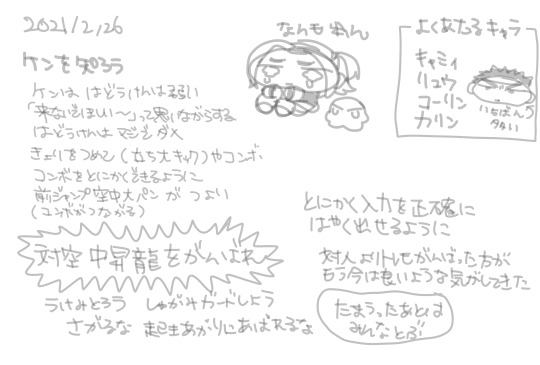 2021/2,26
なんも
よくあたるキャラ
キャミィ
リュウ
コーリン
カリン
いちばん
多い
ケンを知ろう
ケンは はどうけんは弱い
「来ないでほしい〜」って思いながらする
はどうけんは マジでダメ
きょりをつめて(立ち大キック)やコンボ、
コンボをとにかくできるように
前ジャンプ空中大パン が つよい
(コンボがつながる)
対空 中昇龍をがんばれ
うけみとろう しゃがみガードしよう
さがるな 起きあがりにあばれるな
とにかく入力を正確に
はやく出せるように
対人よりトレモがんばった方が
もう今は良いような気がしてきた
たまうったあとは
みんなとぶ